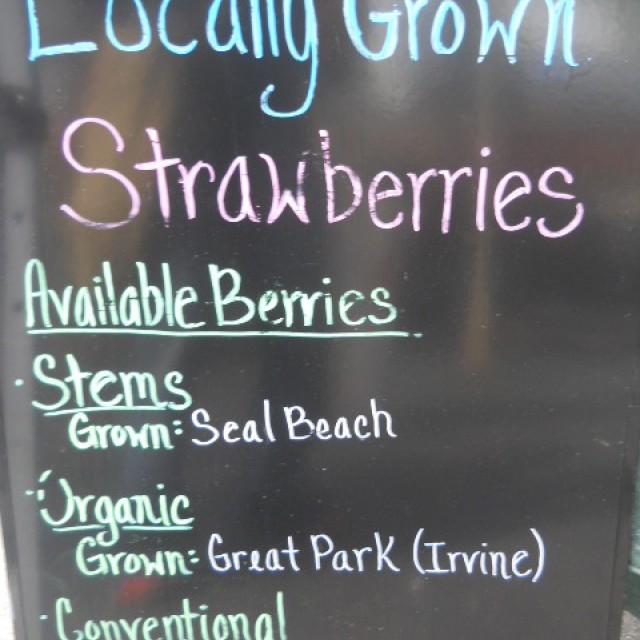 Locally Grown
Strawberries
Available Berries
· Stems
Grown: Seal Beach
· Organic
Grown: Great Park (Irvine)
· Conventional